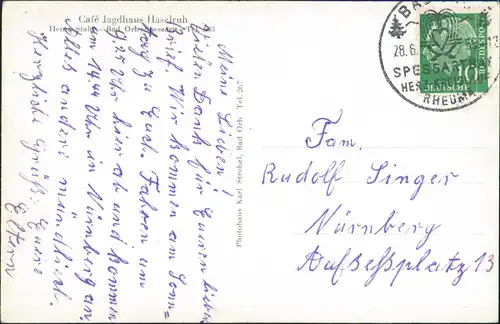 Café Jagdhaus Haselruh
Bad Orb
Meine Lieben!
Vielen Dank für Euren lieben
Brief. Wir kommen am Sonn-
tag zu Euch. Fahren um
Uhr hier ab und kommen
um 14.44 Uhr in Nürnberg an.
Alles andere mündlich.
Herzliche Grüße Eure
Eltern
Photohaus Karl Strobel, Bad Orb Tel. 267
28.6.
SPESSART
HERZ
RHEUMA
DEUTSCHE BUNDESPOST
10
Fam.
Rudolf Singer
Nürnberg
Aufseßplatz 13